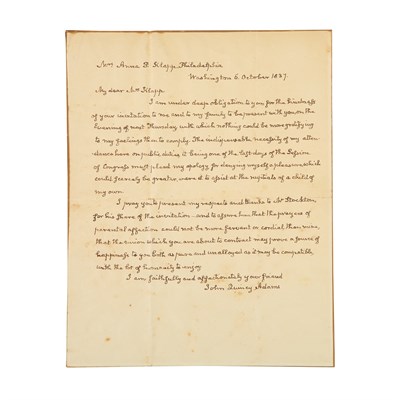 Mrs Anna B. Klapp, Philadelphia
Washington 6. October 1837.
My dear Mrs Klapp
I am under deep obligation to you for the kindness
of your invitation to me and to my family to be present with you on the
Evening of next Thursday, with which nothing could be more gratifying
to my feelings than to comply. The indispensable necessity of my atten
dance on public duties it being one of the last days of the Session
of Congress must plead my apology for denying myself a pleasure which
could scarcely be greater, were it to assist at the nuptials of a child of
my own.
I pray you to present my respects and thanks to Mr Stockton
for his share of the invitation and to assure him that the prayers of
parental affection could not be more fervent or cordial than mine,
that the union which you are about to contract may prove a source of
happiness to you both as pure and unalloyed as it may be compatible
with the lot of humanity to enjoy.
I am faithfully and affectionately your friend
John Quincy Adams